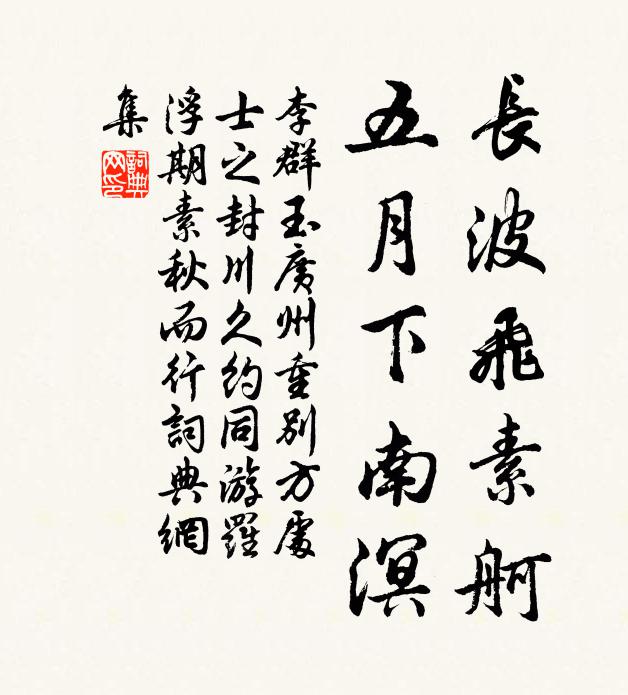 長波飛素舸
五月下南溟
李群玉廣州重別方處
士之封川久約同游羅
浮期素秋而行詞典網
集
詞典網印